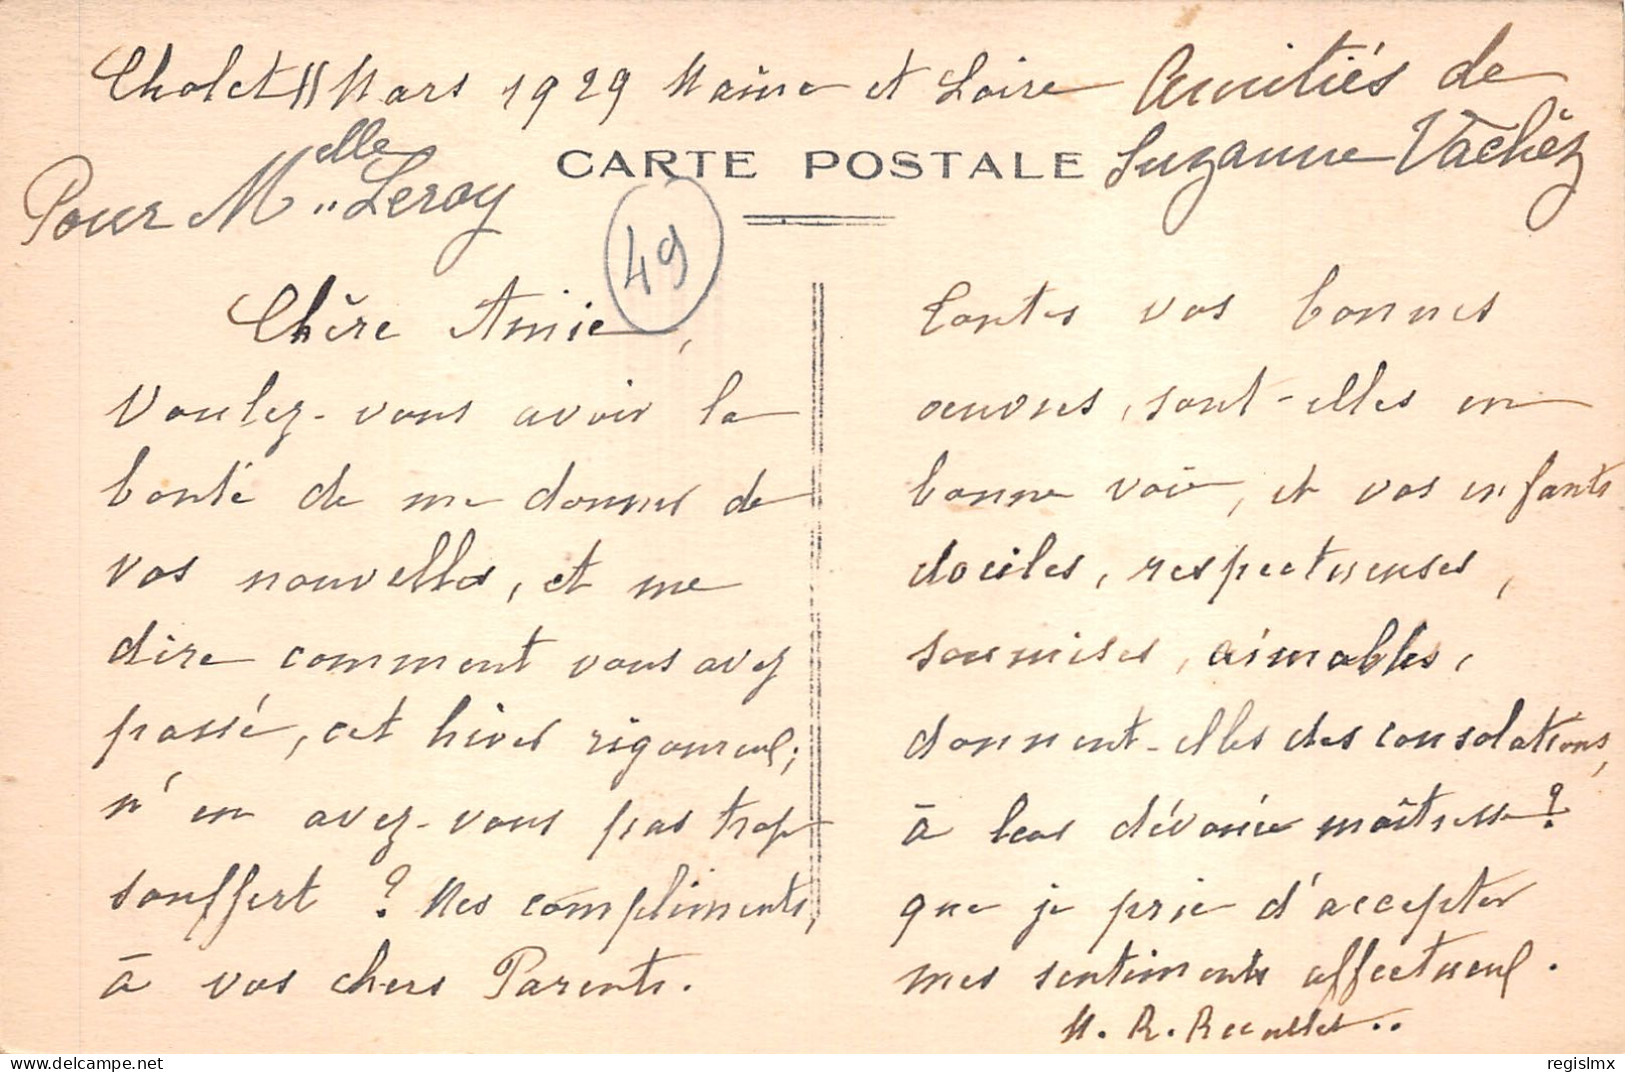 Cholet 11 Mars 1929 Maine et Loire
Amitiés de
Suzanne Vachéz
Pour Melle Leroy
CARTE POSTALE
49
Chère Amie,
Voulez-vous avoir la
bonté de me donner de
vos nouvelles, et me
dire comment vous avez
passé, cet hiver rigoureux;
n'en avez-vous pas trop
souffert ? Mes compliments,
à vos chers Parents.
Toutes vos bonnes
œuvres, sont-elles en
bonne voie, et vos enfants
dociles, respectueuses,
soumises, aimables,
donnent-elles des consolations,
à leur dévouée maîtresse ?
que je prie d'accepter
mes sentiments affectueux.
M. R.
regislmx